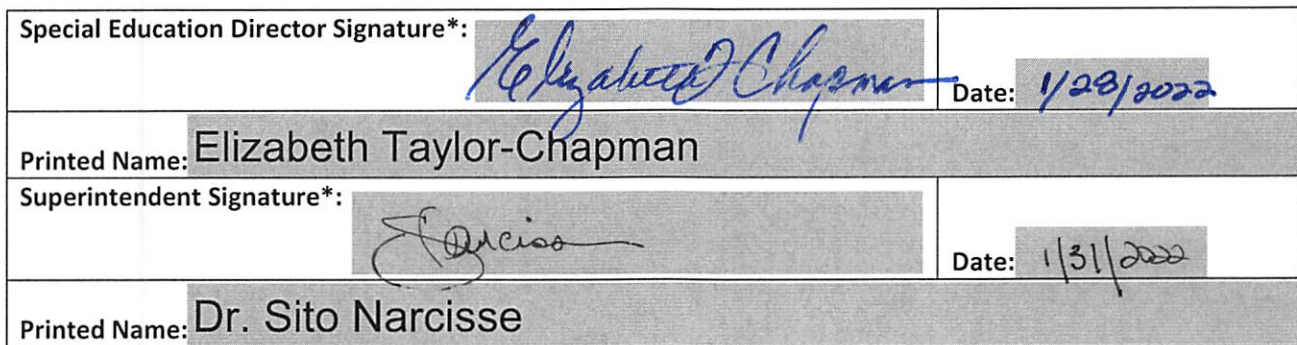 Special Education Director Signature*: Elizabeth T Chapman Date: 1/28/2022
Printed Name: Elizabeth Taylor-Chapman
Superintendent Signature*: Narcisse Date: 1/31/2022
Printed Name: Dr. Sito Narcisse